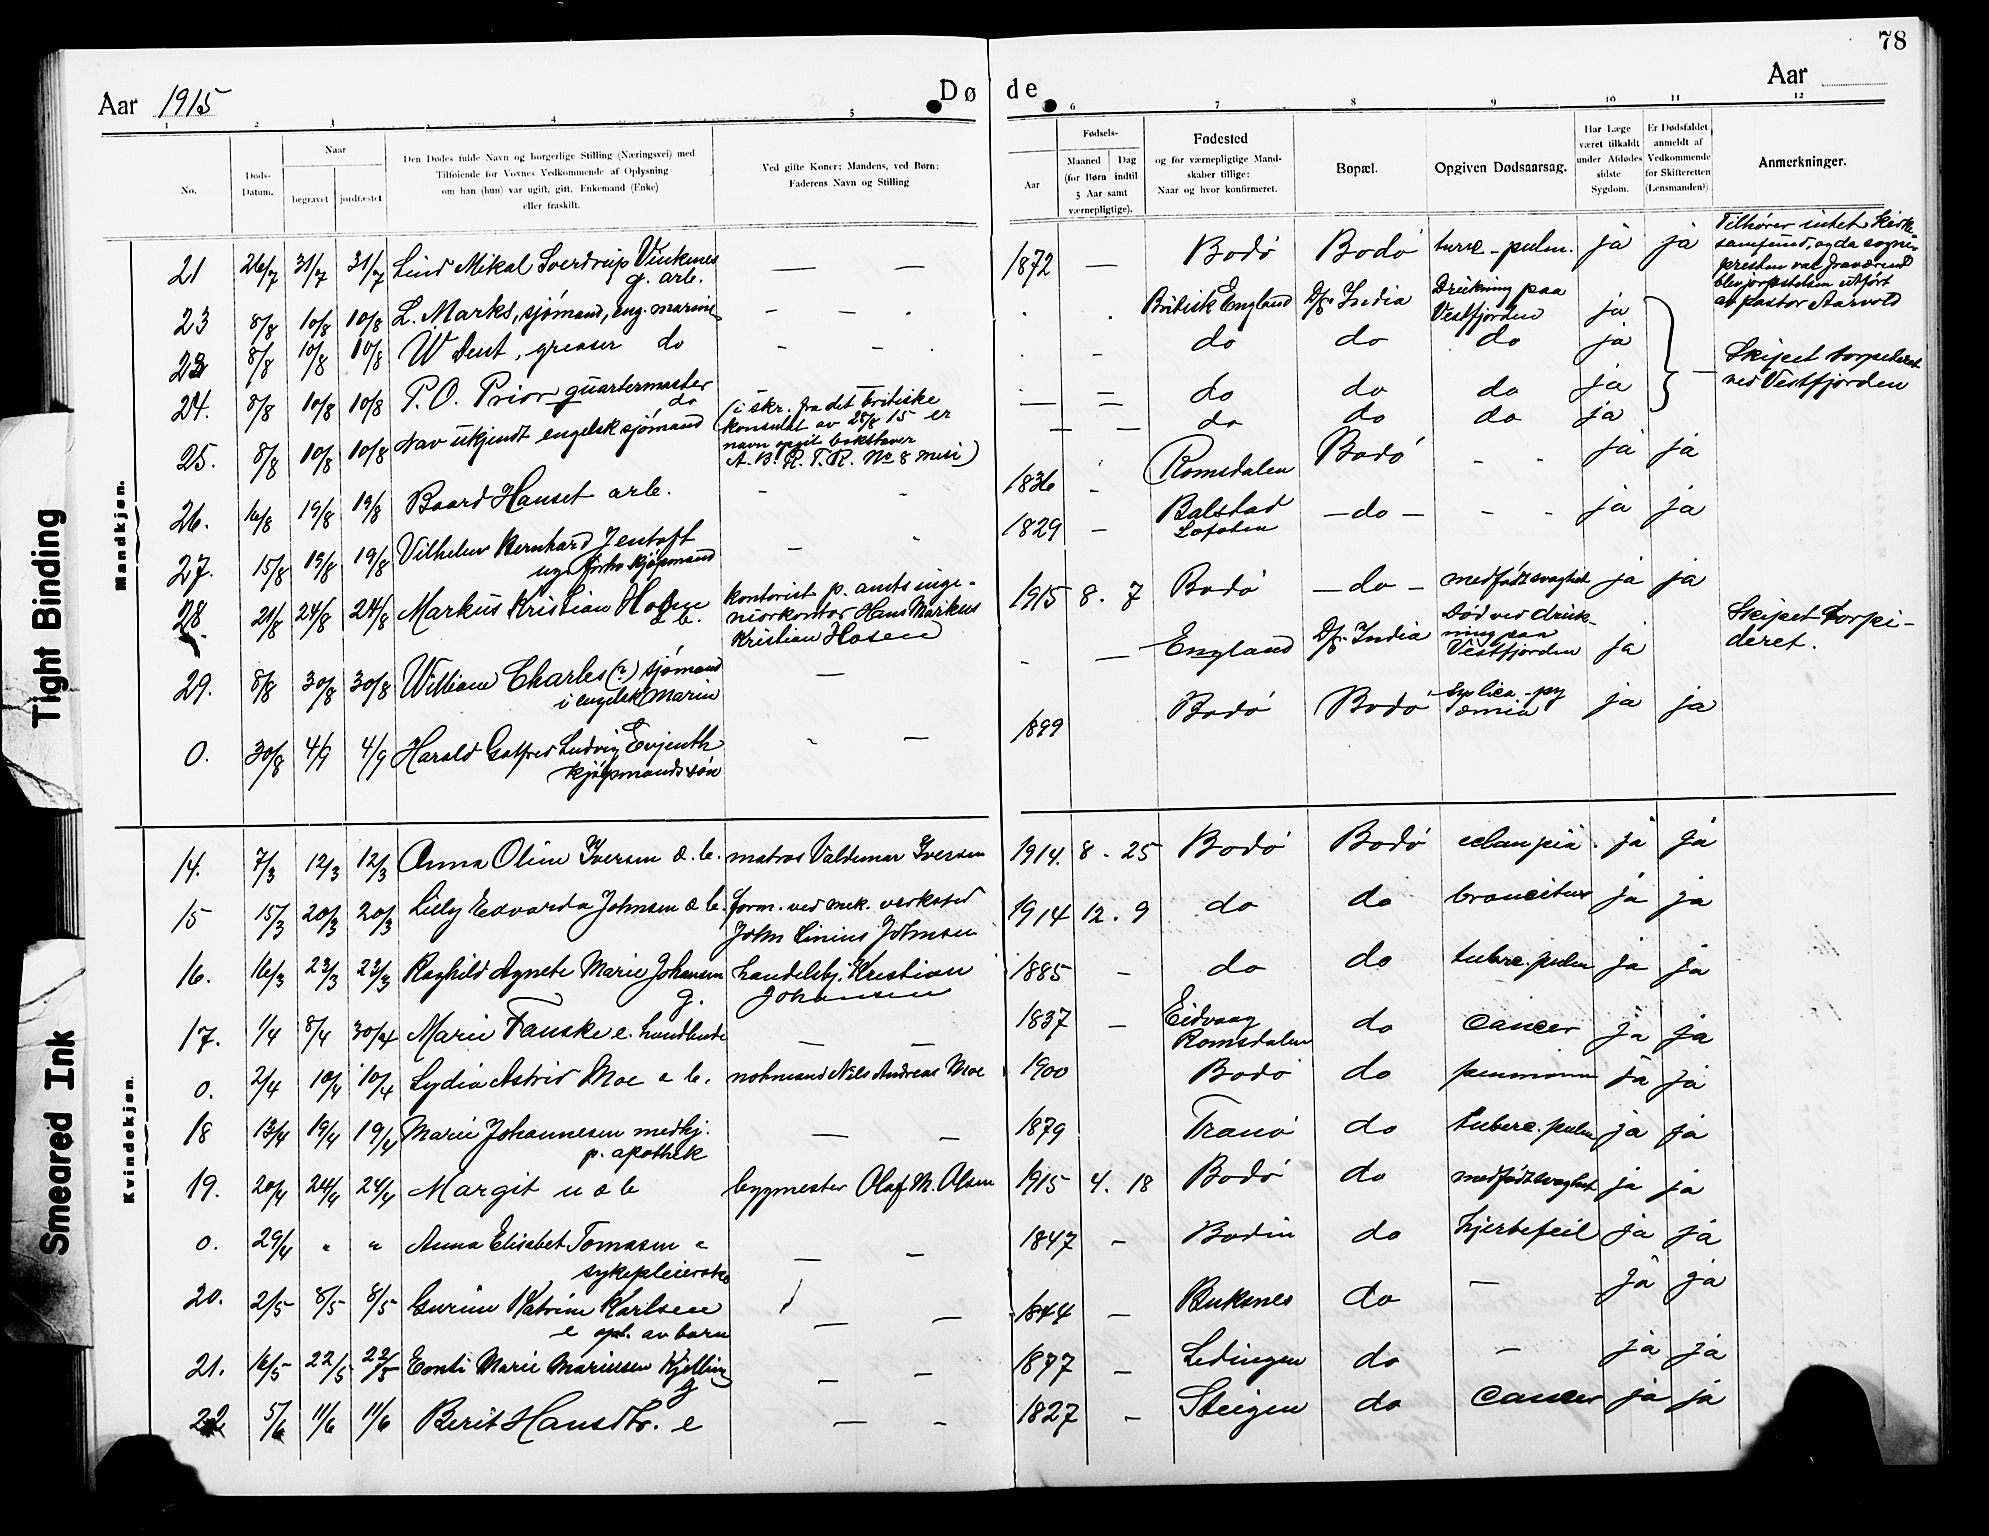 78
Aar 1915
Døde
Aar
1 2 3 4 5 6 7 8 9 10 11 12
No.
Døds-Datum.
Naar
begravet jordfæstet
Den Dødes fulde Navn og borgerlige Stilling (Næringsvei) med
Tilføiende for Voxnes Vedkommende af Oplysning
om han (hun) var ugift, gift, Enkemand (Enke)
eller fraskilt.
Ved gifte Koner: Mandens, ved Børn:
Faderens Navn og Stilling
Fødsels-
Aar
Maaned Dag
(for Børn indtil
5 Aar samt
værnepligtige).
Fødested
og for værnepligtige Mand-
skaber tillige:
Naar og hvor konfirmeret.
Bopæl.
Opgiven Dødsaarsag.
Har Læge
været tilkaldt
under Afdødes
sidste
Sygdom.
Er Dødsfaldet
anmeldt af
Vedkommende
for Skifteretten
(Lensmanden?)
Anmerkninger.
Mandkjøn.
21 26/7 31/7 31/7 Lind Mikal Sverdrup Vinkenes g. arb. — — 1872 — Bodø Bodø turc-pulm. ja ja
Tilhører intet Kirke-
samfund, og da sogne-
presten var fraværende
blev jorpaak. utført
av pastor Aarvold
23 8/8 10/8 10/8 L. Marks, sjømand, eng. marine - - - Britisk England D/s. India Drukning paa Vestfjorden ja
23 8/8 10/8 10/8 W Dent, greaser do - - do do do ja
Skipet torpederet
ved Vestfjorden
24. 8/8 10/8 10/8 P. O. Prior quartermaster do — — do do do ja
25. 8/8 10/8 10/8 Nav ukjendt engelsk sjømand (i skr. fra det britiske
konsulat av 28/8 15 er
navn opgit bokstaver
A. B. R. T. R. No 8 mess) — — do do do ja
26. 16/8 19/8 19/8 Baard Hanset arb. - - 1836 - Romsdalen Bodø - - ja ja
27. 15/8 19/8 19/8 Vilhelm Bernhard Jentoft
ug. forhv. kjøpmand - - 1829 - Balstad Lofoten — do — - - ja ja
28 21/8 24/8 24/8 Markus Kristian Hosen d. b. kontorist p. amtsinge-
niørkontor Hans Markus
Kristian Hosen 1915 8. 7 Bodø — do — medfødt svaghet ja ja
29. 8/8 30/8 30/8 William Charles (?) sjømand
i engelsk Marin — - — England D/s. India Død ved druk-
ning paa
Vestfjorden ja Skipet torpe-
deret.
0. 30/8 4/9 4/9 Harald Gotfred Ludvig Evjenth
kjøpmandssøn - — 1899 Bodø Bodø ja ja
Kvindekjøn.
14. 7/3 12/3 12/3 Anna Oline Iversen d. b. matros Valdemar Iversen 1914. 8 - 25 Bodø Bodø eclampia. ja ja
15 15/3 20/3 20/3 Lilly Edvarda Johnsen d b. form. ved mek. verksted
John Linius Johnsen 1914 12. 9 do do broncitus ja ja
16. 16/3 23/3 23/3 Raghild Agnete Marie Johansen g. handelsbj. Kristian
Johansen 1885 - do do tuberc. pulm ja ja
17. 1/4 8/4 30/4 Marie Fauske e. handlende — — 1837 — Eidvaag
Romsdalen do cancer ja ja
0. 2/4 10/4 10/4 Lydia Astrid Moe d b. notmand Nils Andreas Moe 1900 Bodø do ja ja
18 13/4 19/4 19/4 Marie Johannesen medhj.
p. apothek — — 1879 Tranø do tuberc. pulm ja ja
19. 20/4 24/4 24/4 Margit u d b bygmester Olaf M. Olsen 1915 4. 18 Bodø do medfødt svaghet ja ja
0. 29/4 " " Anna Elisabet Tomasen
sykepleierske — — 1847 — Bodin do hjertefeil ja ja
20. 2/5 8/5 8/5 Gurine Katrine Karlsen
e opt. av barn — — 1844 — Buksnes do — ja ja
21. 16/5 22/5 22/5 Marie Mariusen Kjelling g — — 1877 — Lødingen do — ja ja
22 5/6 11/6 11/6 Berit Hansdtr. e — — 1827 — Steigen do cancer ja ja
Tight Binding
Smeared Ink